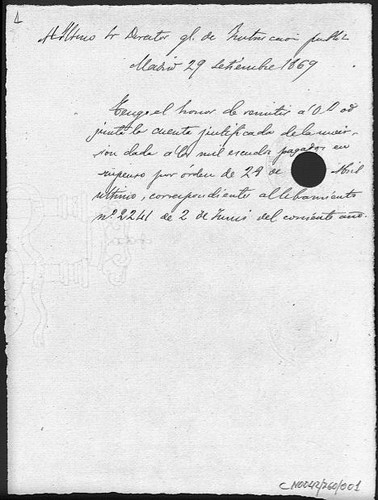 1
Al Ilmo Sr Director gl. de Instruccion publ.
Madrid 29 Setiembre 1869
Tengo el honor de remitir a V.I. ad
junta la cuenta justificada de la inver
sion dada a los mil escudos pagados en
suspenso por órden de 29 de Abril
ultimo, correspondientes al libramiento
nº 2241 de 2 de Junio del corriente año.
CN0042/260/001